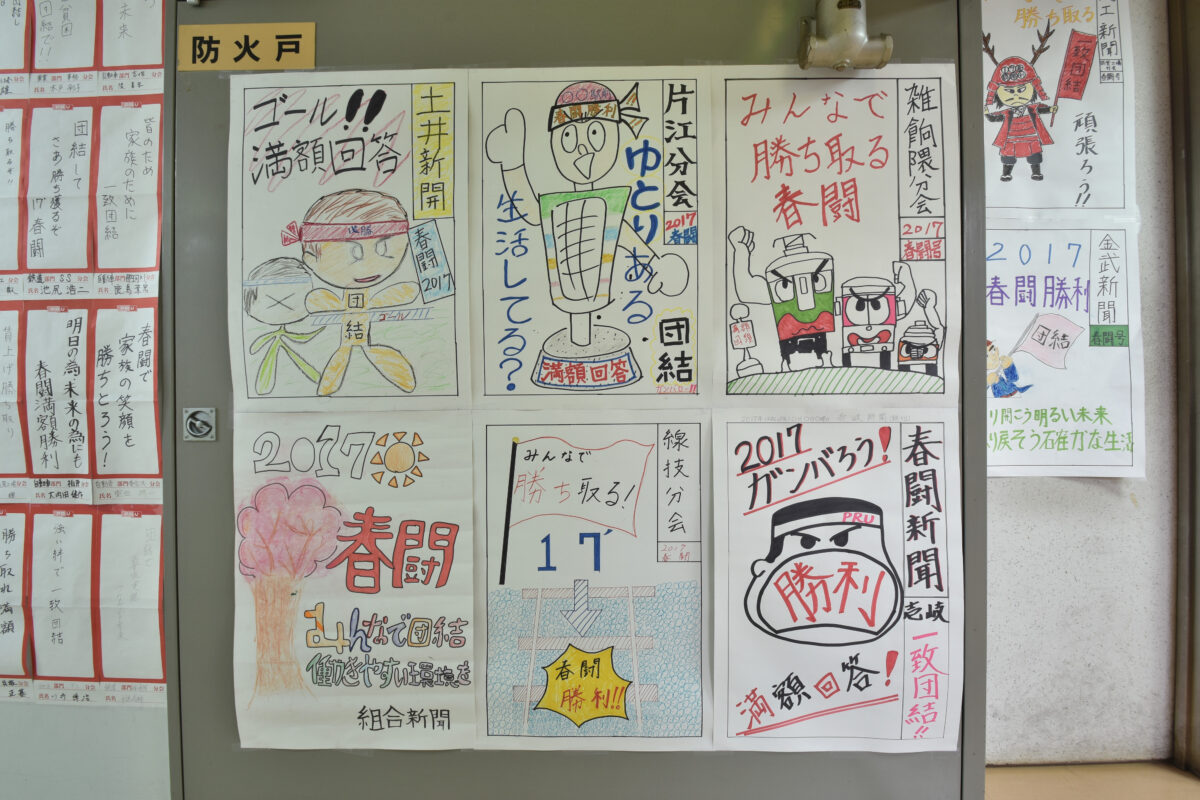 防火戸
ゴール!!
満額回答
土井新聞
必勝
春闘
2017
団
結
ゴール
春闘勝利
片江分会
2017
春闘
ゆとりある
生活してる?
団結
ガンバロー!!
満額回答
みんなで
勝ち取る
春闘
雑餉隈分会
2017
春闘号
満額
回答
2017
春闘
みんなで団結
働きやすい環境を
組合新聞
みんなで
勝ち取る!
17'
線技分会
2017
春闘
春闘
勝利!!
2017
ガンバろう!
PRU
勝利
満額回答!
春闘新聞
壱岐
一致団結!!
勝ち取る
一致団結
頑張ろう!!
新聞
春闘号
2017
春闘勝利
金武新聞
春闘号
団結
り開こう明るい未来
り戻そう石確かな生活
未来
団結!!
皆のため
家族のために
一致団結
団結して
さあ勝ち獲るぞ
17春闘
勝ち取るぞ!!
池尻浩二
春闘で
家族の笑顔を
勝ちとろう!
明日の為未来の為にも
春闘満額勝利
賃上げ勝ち取り
強い絆で一致団結
勝ち取れ満額